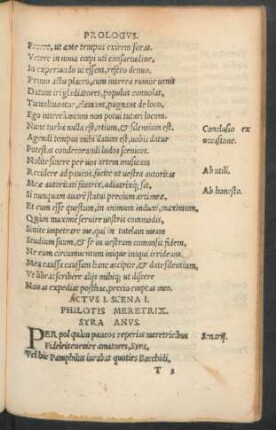 PROLOGVS.
Fecere, ut ante tempus exirem foras.
Vetere in noua cœpi uti consuetudine,
In experiundo ut essem, refero denuo.
Primo actu placeo, cum interea rumor uenit
Datum iri gladiatores, populus conuolat,
Tumultuantur, clamant, pugnant de loco,
Ego interea meum non potui tutari locum.
Nunc turba nulla est, otium, & silentium est.
Agendi tempus mihi datum est, uobis datur
Potestas condecorandi ludos scenicos.
Nolite sinere per uos artem musicam
Recidere ad paucos, facite ut uestra autoritas
Meæ autoritati fautrix, adiutrixq; sit,
Si nunquam auare statui precium arti meæ,
Et eum esse quæstum, in animum induxi, maximum,
Quàm maxime seruire uestris commodis,
Sinite impetrare me, qui in tutelam meam
Studium suum, & se in uestram commisit fidem,
Ne eum circumuentum inique iniqui irrideant.
Mea caussa caussam hanc accipite, & date silentium,
Vt libeat scribere alijs mihiq; ut discere
Nouas expediat posthac, precio emptas meo.
ACTVS I. SCENA I.
PHILOTIS MERETRIX.
SYRA ANVS.
PER pol quàm paucos reperias meretricibus
Fideles euenire amatores, Syra,
Vel hic Pamphilus iurabat quoties Bacchidi,
T 3
Conclusio ex
occasione.
Ab utili.
Ab honesto.
Senarij.